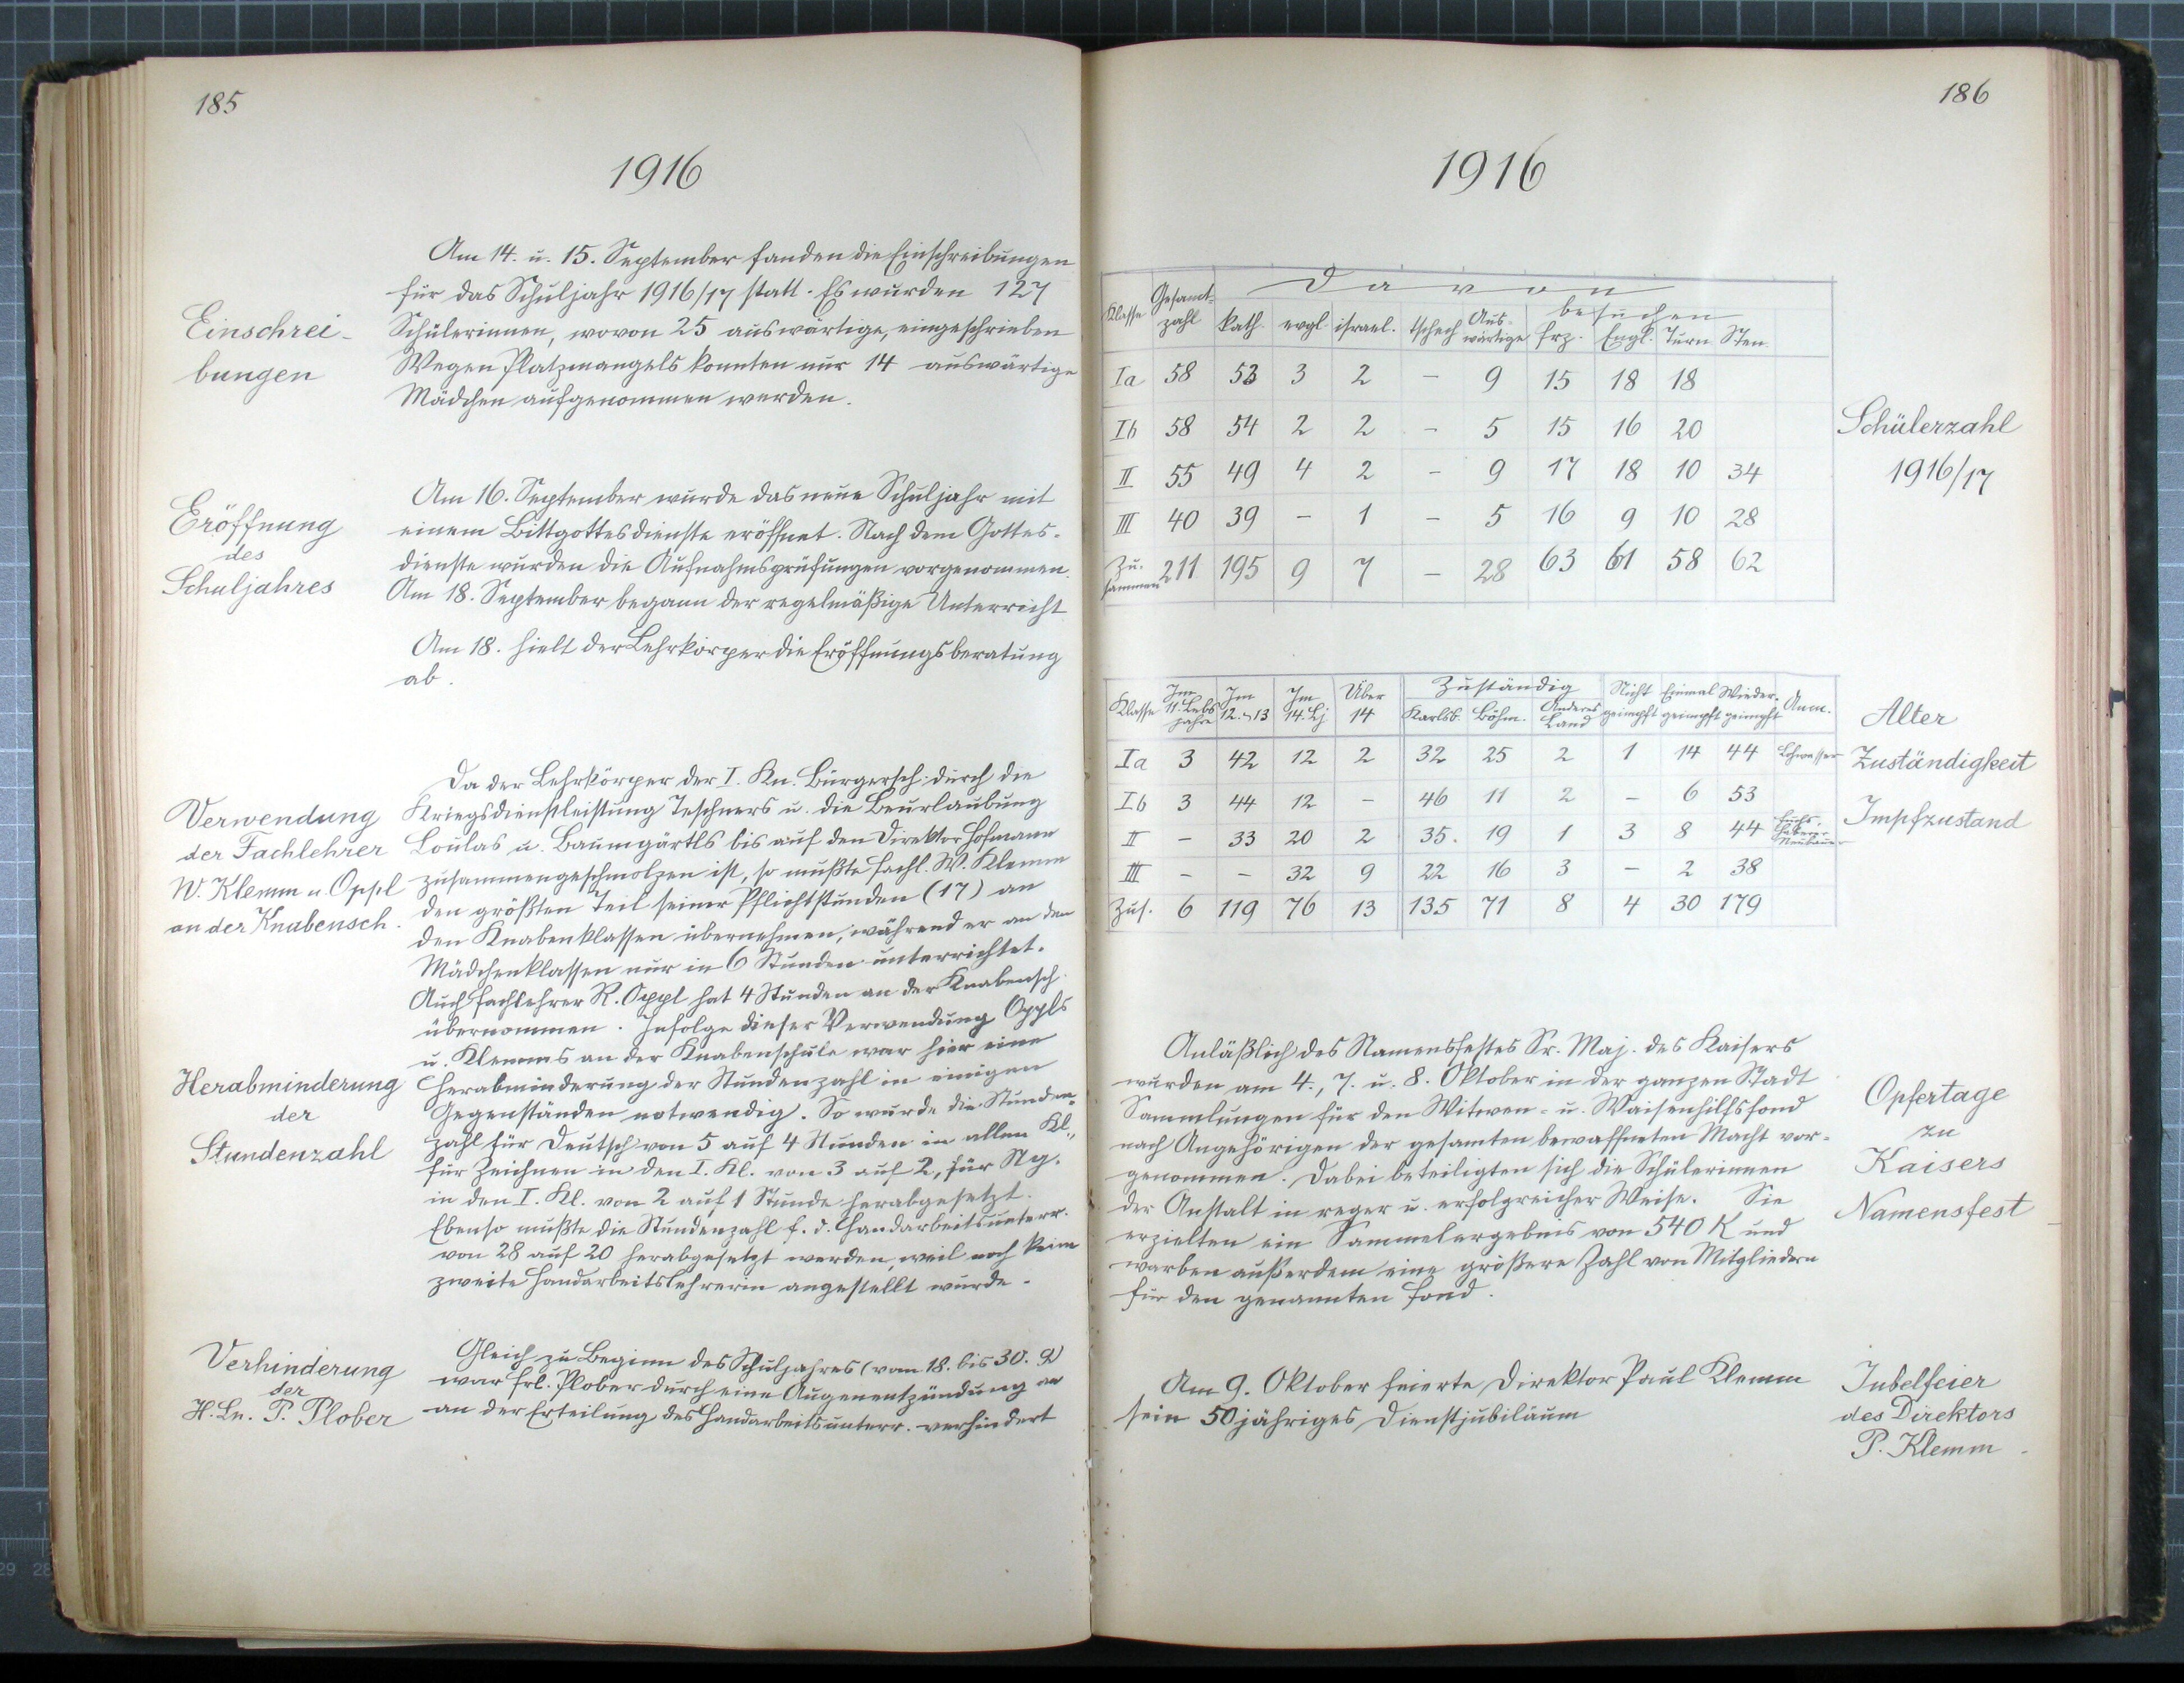 185
1916
Einschrei-
bungen
Am 14. u. 15. September fanden die Einschreibungen
für das Schuljahr 1916/17 statt. Es wurden 127
Schülerinnen, wovon 25 auswärtige, eingeschrieben
Wegen Platzmangels konnten nur 14 auswärtige
Mädchen aufgenommen werden.
Eröffnung
des
Schuljahres
Am 16. September wurde das neue Schuljahr mit
einem Bittgottesdienste eröffnet. Nach dem Gottes-
dienste wurden die Aufnahmsprüfungen vorgenommen.
Am 18. September begann der regelmäßige Unterricht
Am 18. hielt der Lehrkörper die Eröffnungsberatung
ab.
Verwendung
der Fachlehrer
W. Klemm u. Oppl
an der Knabensch.
Da der Lehrkörper der I. Kn. Bürgersch. durch die
Kriegsdienstleistung Teschners u. die Beurlaubung
Loulas u. Baumgärtls bis auf den Direktor Hofmann
zusammengeschmolzen ist, so mußte Fachl. W. Klemm
den größten Teil seiner Pflichtstunden (17) an
den Knabenklassen übernehmen, während er an den
Mädchenklassen nur in 6 Stunden unterrichtet.
Auch Fachlehrer R. Oppl hat 4 Stunden an der Knabensch.
übernommen. Infolge dieser Verwendung Oppls
u. Klemms an der Knabenschule war hier eine
Herabminderung
der
Stundenzahl
Herabminderung der Stundenzahl in einigen
Gegenständen notwendig. So wurde die Stunden-
zahl für Deutsch von 5 auf 4 Stunden in allen Kl.,
für Zeichnen in den I. Kl. von 3 auf 2, für Ng.
in den I. Kl. von 2 auf 1 Stunde herabgesetzt.
Ebenso mußte die Stundenzahl f. d. Handarbeitsunterr.
von 28 auf 20 herabgesetzt werden, weil noch keine
zweite Handarbeitslehrerin angestellt wurde.
Verhinderung
der
H.Ln. P. Plober
Gleich zu Beginn des Schuljahres (vom 18. bis 30. 9)
war Frl. Plober durch eine Augenentzündung an
an der Erteilung des Handarbeitsunterr. verhindert
186
1916
Klasse Gesamt-zahl Davon
kath. evgl. israel. tschech Aus-wärtige besuchen frz. Engl. Turn. Sten.
Ia 58 53 3 2 – 9 15 18 18
Ib 58 54 2 2 – 5 15 16 20
II 55 49 4 2 – 9 17 18 10 34
III 40 39 – 1 – 5 16 9 10 28
Zu-sammen 211 195 9 7 – 28 63 61 58 62
Schülerzahl
1916/17
Klasse Im 11. Lebs jahre Im 12. u 13 Im 14. Lj Über 14 Zuständig Karlsb. Böhm. Anderes Land Nicht geimpft Einmal geimpft Wieder-geimpft Anm.
Ia 3 42 12 2 32 25 2 1 14 44
Ib 3 44 12 – 46 11 2 – 6 53
II – 33 20 2 35. 19 1 3 8 44
III – – 32 9 22 16 3 – 2 38
Zus. 6 119 76 13 135 71 8 4 30 179
Alter
Zuständigkeit
Impfzustand
Anläßlich des Namensfestes Sr. Maj. des Kaisers
wurden am 4., 7. u. 8. Oktober in der ganzen Stadt
Sammlungen für den Witwen- u. Waisenhilfsfond
nach Angehörigen der gesamten bewaffneten Macht vor-
genommen. Dabei beteiligten sich die Schülerinnen
der Anstalt in reger u. erfolgreicher Weise. Sie
erzielten ein Sammelergebnis von 540 K und
warben außerdem eine größere Zahl von Mitgliedern
für den genannten Fond.
Opfertage
zu
Kaisers
Namensfest
Am 9. Oktober feierte Direktor Paul Klemm
sein 50jähriges Dienstjubiläum
Jubelfeier
des Direktors
P. Klemm